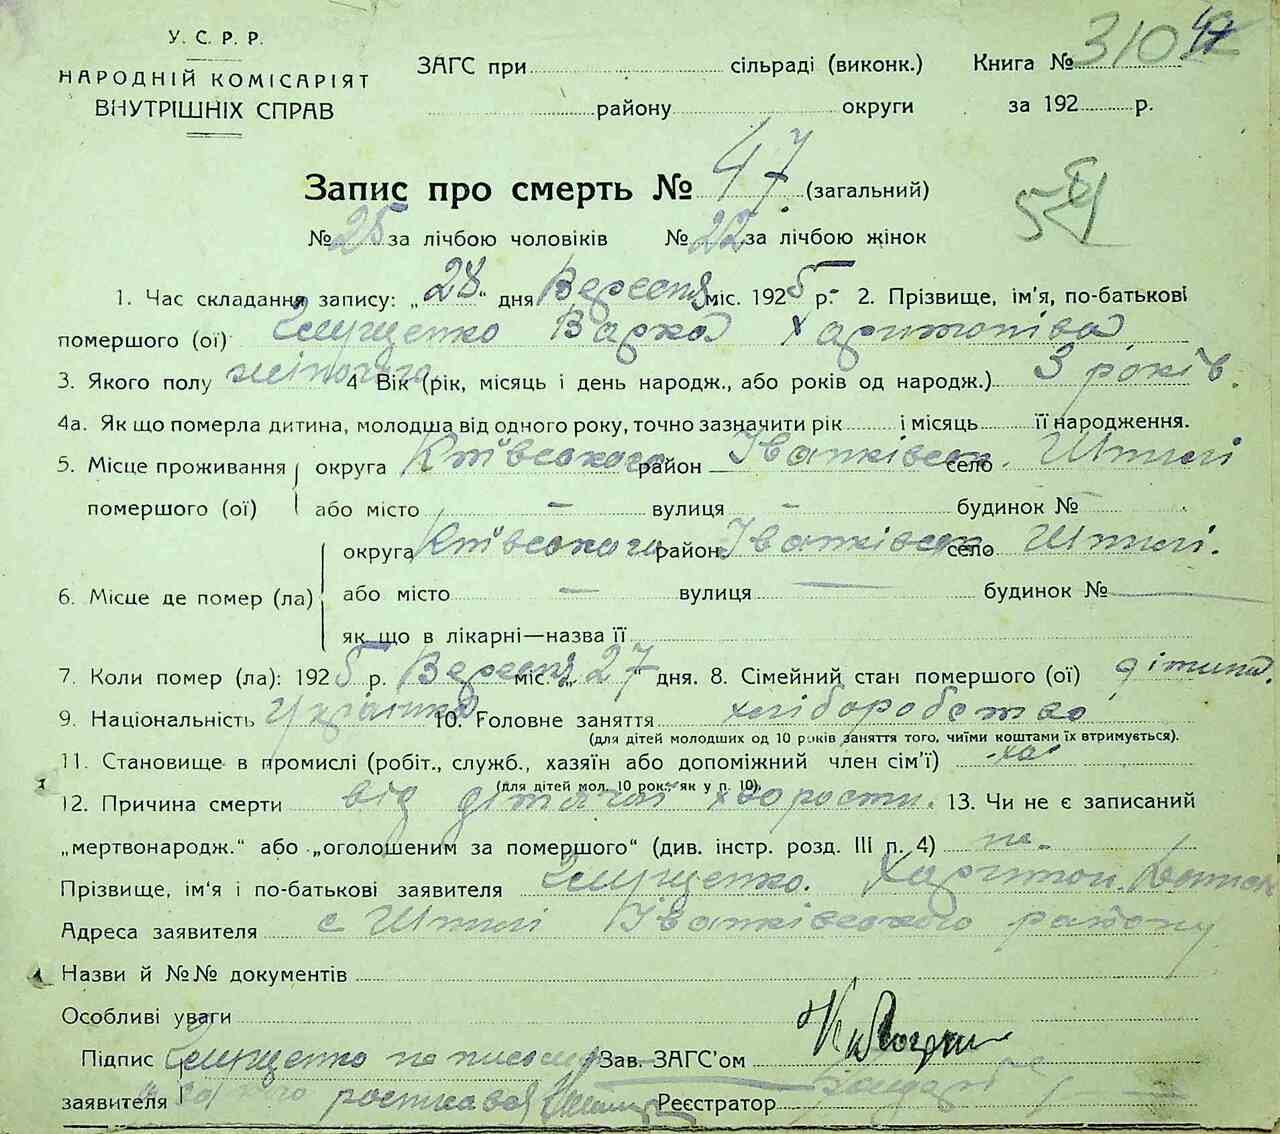 У. С. Р. Р.
НАРОДНІЙ КОМІСАРІЯТ
ВНУТРІШНІХ СПРАВ
ЗАГС при сільраді (виконк.) Книга № 310 47
району округи за 192 р.
Запис про смерть № 47 (загальний)
54
№ 25 за лічбою чоловіків № 22 за лічбою жінок
1. Час складання запису: „28" дня Вересня міс. 1925 р. 2. Прізвище, ім'я, по-батькові
помершого (ої) Варка Харитонівна
3. Якого полу жіночого 4 Вік (рік, місяць і день народж., або років од народж.) 3 років.
4а. Як що померла дитина, молодша від одного року, точно зазначити рік і місяць її народження.
5. Місце проживання помершого (ої) округа Київського район Іванківськ. село Шпилі
або місто — вулиця - будинок №
6. Місце де помер (ла) округа Київського район Іванківськ село Шпилі.
або місто — вулиця — будинок № —
як що в лікарні—назва її
7. Коли помер (ла): 1925 р. Вересня міс. „27" дня. 8. Сімейний стан помершого (ої) дитина.
9. Національність Українка 10. Головне заняття хліборобство
(для дітей молодших од 10 років заняття того, чиїми коштами їх втримується).
11. Становище в промислі (робіт., служб., хазяїн або допоміжний член сім'ї) ха
(для дітей мол. 10 рок., як у п. 10).
12. Причина смерти від дітячої хворости. 13. Чи не є записаний
„мертвонародж." або „оголошеним за помершого" (див. інстр. розд. III п. 4) не.
Прізвище, ім'я і по-батькові заявителя Харитон.
Адреса заявителя с Шпилі Іванківського району
Назви й №№ документів
Особливі уваги
Підпис заявителя
Зав. ЗАГС'ом
Реєстратор